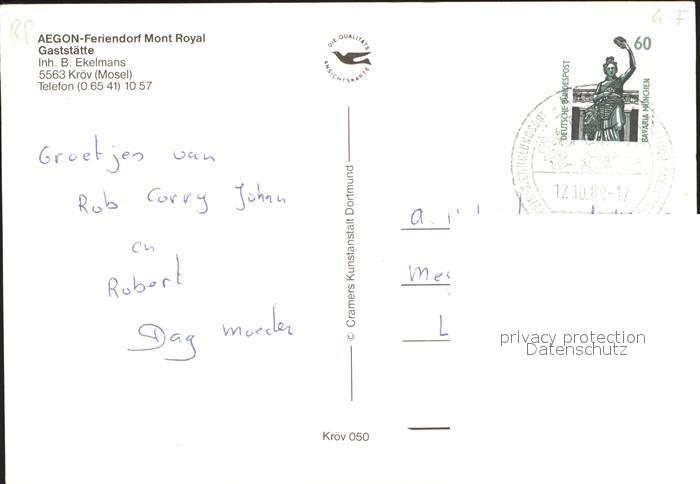 RP
G-F
AEGON-Feriendorf Mont Royal
Gaststätte
Inh. B. Ekelmans
5563 Kröv (Mosel)
Telefon (0 65 41) 10 57
DIE QUALITÄTS
ANSICHTSKARTE
60
DEUTSCHE BUNDESPOST
BAVARIA MÜNCHEN
17.10.89-17
Groetjes van
Rob Corry Johan
en
Robert
Dag moeder
© Cramers Kunstanstalt Dortmund
Kröv 050
privacy protection
Datenschutz